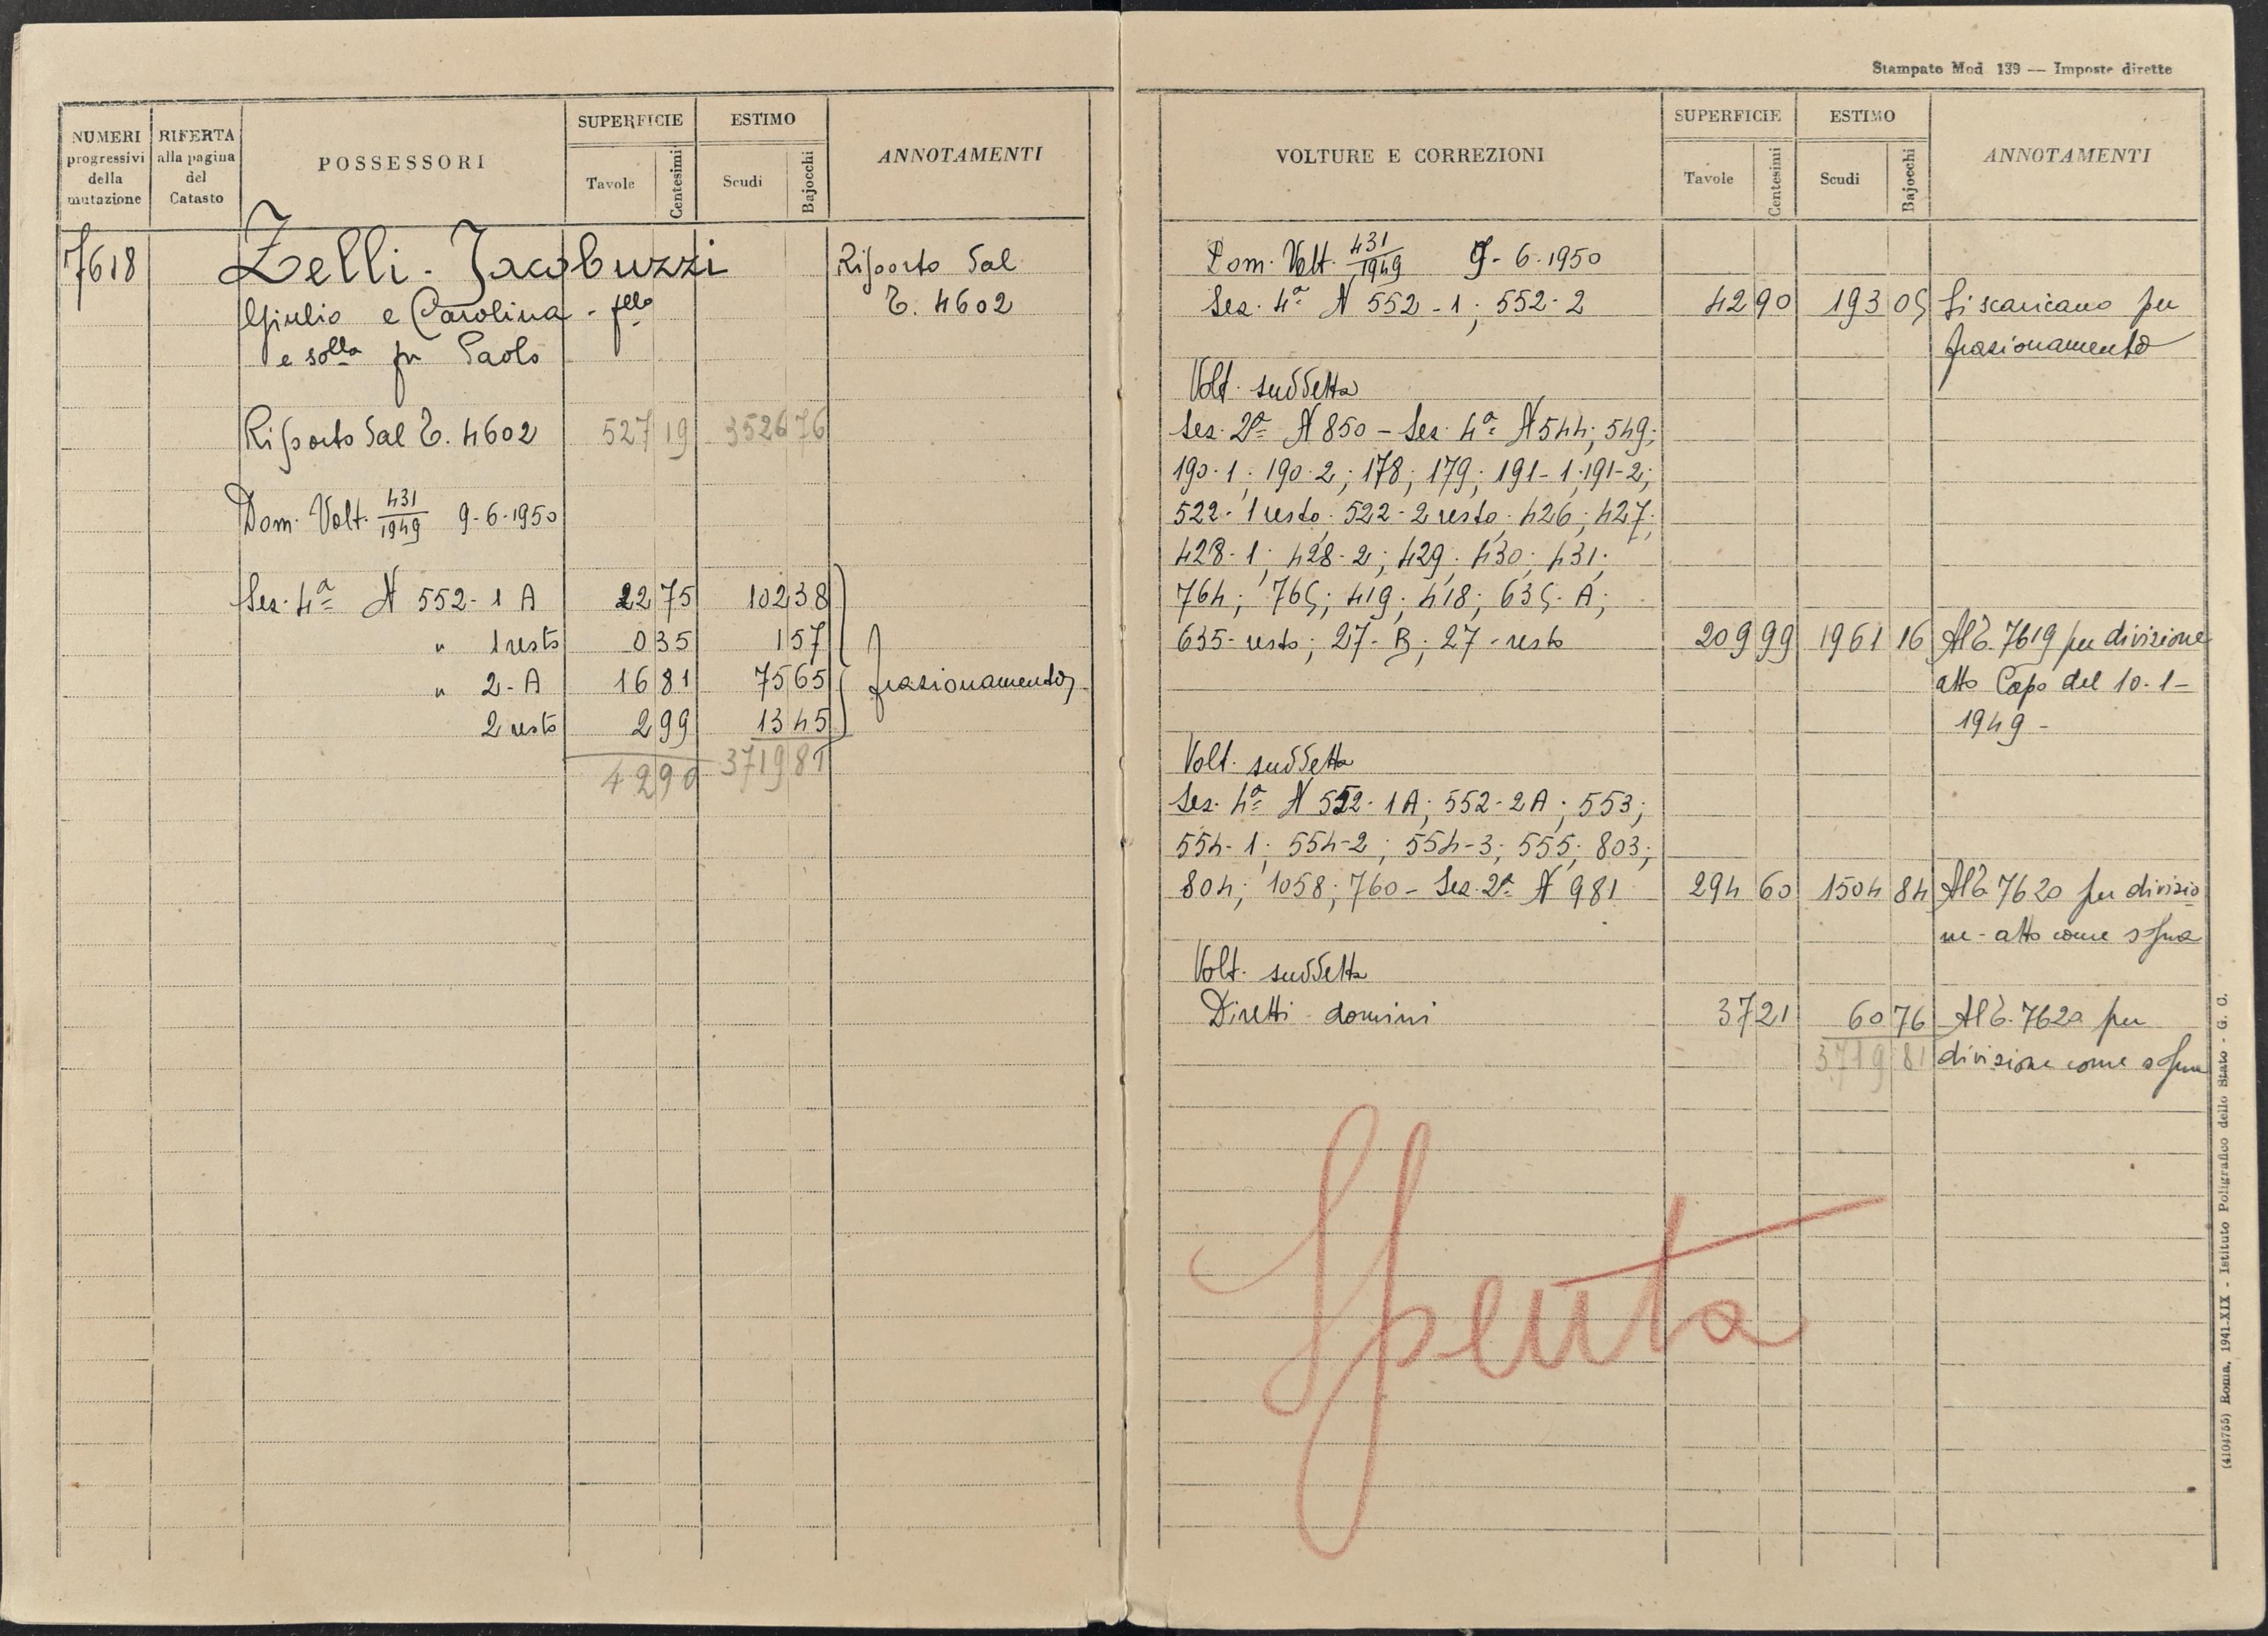 Stampato Mod 139 — Imposte dirette
NUMERI progressivi della mutazione
RIFERTA alla pagina del Catasto
POSSESSORI
SUPERFICIE
Tavole
Centesimi
ESTIMO
Scudi
Bajocchi
ANNOTAMENTI
7618 Zelli - Jacobuzzi
Giulio e Carolina - fllo
e solla fu Paolo
Riporto dal T. 4602 527 19 3526 76
Dom. Volt. 431/1949 9-6-1950
Sez. 4ª N 552-1 A 22 75 102 38
" 1 resto 0 35 1 57
" 2-A 16 81 75 65
2 resto 2 99 13 45
42 90 3719 81
Riporto dal
T. 4602
frazionamento
VOLTURE E CORREZIONI
SUPERFICIE
Tavole
Centesimi
ESTIMO
Scudi
Bajocchi
ANNOTAMENTI
Dom. Volt. 431/1949 9-6-1950
Sez. 4ª N 552-1; 552-2 42 90 193 05 Si scaricano per
frazionamento
Volt. suddetta
Sez. 2ª N 850 - Sez. 4ª N 544; 549;
190-1; 190-2; 178; 179; 191-1; 191-2;
522-1 resto; 522-2 resto; 426; 427;
428-1; 428-2; 429; 430; 431;
764; 765; 419; 418; 635-A;
635-resto; 27-B; 27-resto 209 99 1961 16 Al T. 7619 per divisione
atto Capo del 10-1-
1949 -
Volt. suddetta
Sez. 4ª N 552-1A; 552-2A; 553;
554-1; 554-2; 554-3; 555; 803;
804; 1058; 760 - Sez. 2ª N 981 294 60 1504 84 Al T. 7620 per divisio
ne - atto come sopra
Volt. suddetta
Diretti domini 37 21 60 76 Al T. 7620 per
3719 81 divisione come sopra
Spenta
(4104755) Roma, 1941-XIX - Istituto Poligrafico dello Stato - G. C.